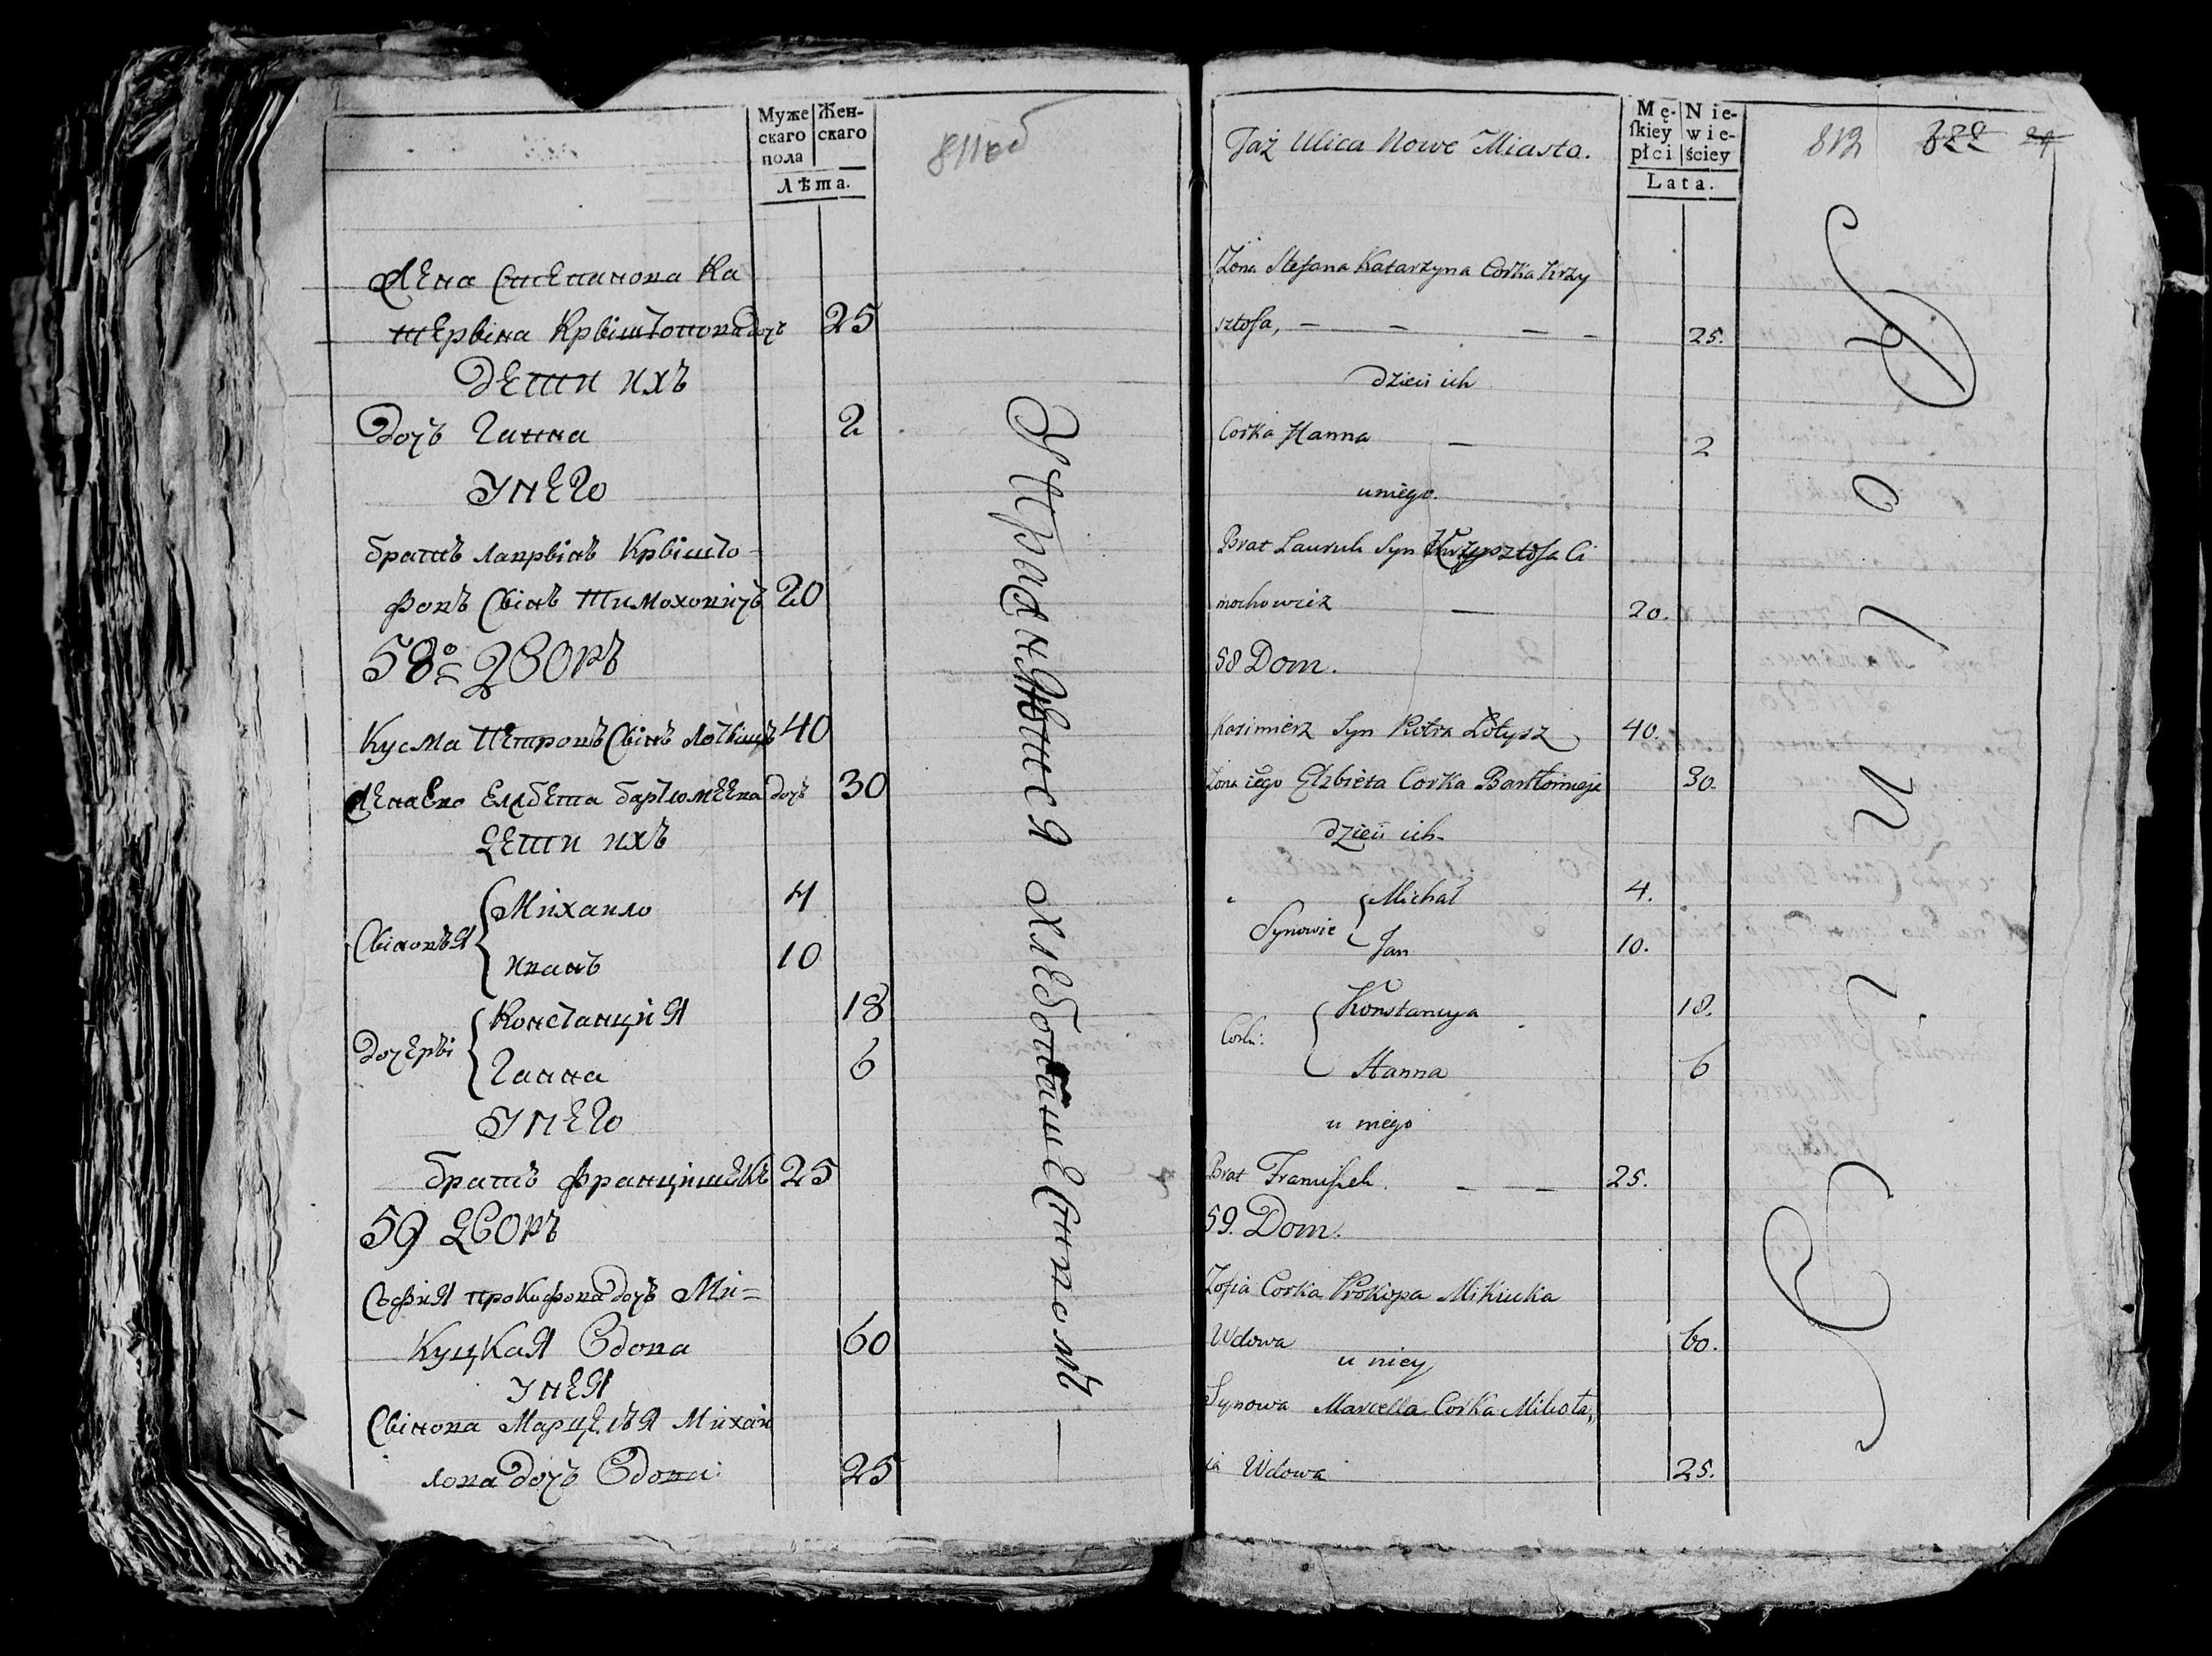 Муже
скаго
пола
Жен-
скаго
Лѣта.
811об
Жена Степанова Ка
терына Крыштопова дочь 25
Дети ихъ
Дочь Ганна 2
У него
братъ Лаврынъ Крышто-
фовъ Сынъ Тимоховичъ 20
58 дворъ
Кусма Петровъ Сынъ Лотышъ 40
Жена Ево Елзбета бартломеева дочь 30
Дети ихъ
Сыновья { Михаило 4
Иванъ 10
Дочеры { Констанция 18
Ганна 6
У него
братъ Францишекъ 25
59 дворъ
София прокофова дочь Ми=
куцкая Вдова 60
У нея
Сынова Марцелья Михаи
лова дочь Вдова 25
Упражняются хлебопашеством —
Taż Ulica Nowe Miasto.
Mę-
skiey
płci
Nie-
wie-
ściey
Lata.
812 322 24
Żona Stefana Katarzyna Corka Krzy
sztofa, — — — — 25.
dzieci ich
Corka Hanna — 2
u niego.
Brat Lauruk Syn Krzysztofa Ci
mochowicz — 20.
58 Dom.
Kazimierz Syn Piotra Łotysz 40.
Żona iego Elzbieta Corka Bartłomieja 30.
dzieci ich
Synowie { Michał 4.
Jan 10.
Corki: { Konstancya 18.
Hanna 6
u niego
Brat Franciszek. — — 25.
59. Dom.
Zofia Corka Prokopa Mikucka
Wdowa 60.
u niey
Synowa Marcella Corka Mikoła„
ia Wdowa 25.
Rolnic